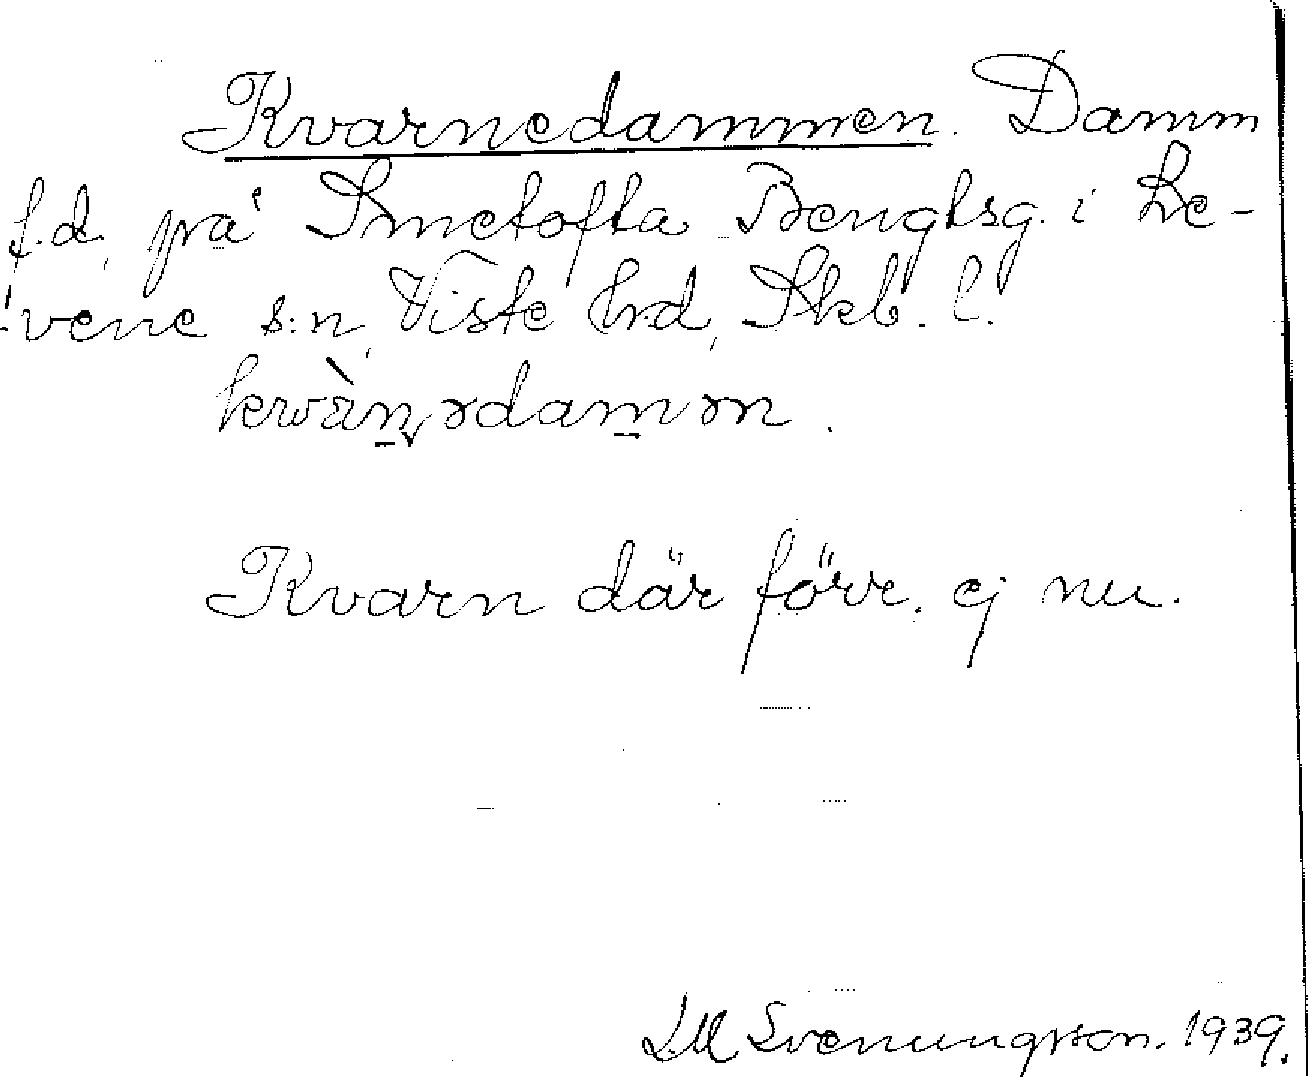 Kvarnedammen. Damm
f.d. på Smetofta Bengtsg. i Le-
vene s:n, Viste hrd, Skb. l.
kwàṉ₍ədam̱ən.
Kvarn där förr. ej nu.
LM Svenungsson. 1939.